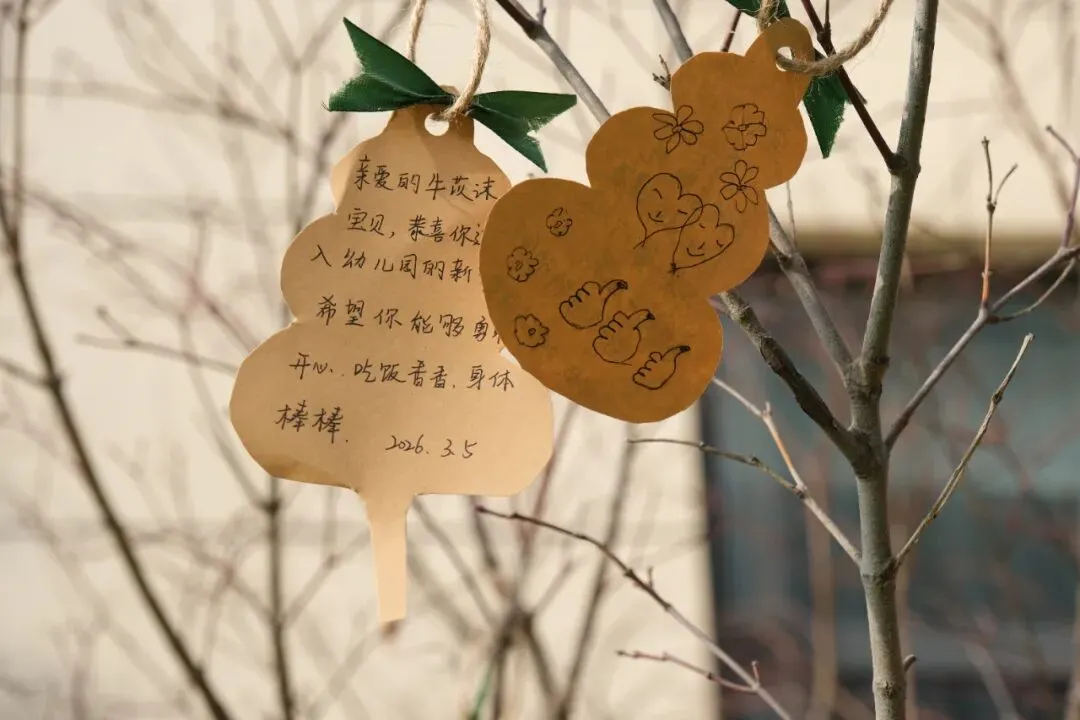 亲爱的牛苡沫
宝贝，恭喜你
入幼儿园的新
希望你能够勇
开心、吃饭香香、身体
棒棒.
2026.3.5